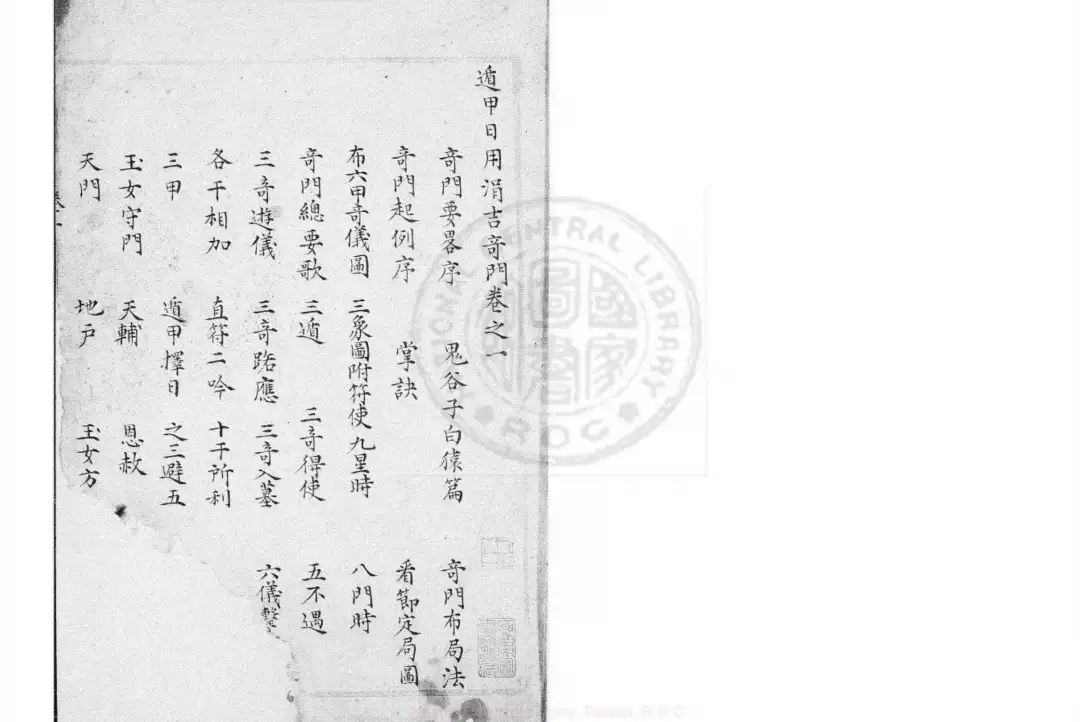 遁甲日用涓吉竒門卷之一
竒門要畧序 鬼谷子白猿篇 竒門布局法
竒門起例序 掌訣 看節定局圖
布六甲竒儀圖 三象圖附符使九星時 八門時
竒門總要歌 三遁 三竒得使 五不遇
三竒遊儀 三竒路應 三竒入墓 六儀擊
各干相加 直符二吟 十干所利
三甲 遁甲擇日 之三避五
玉女守門 天輔 恩赦
天門 地戸 玉女方
CENTRAL LIBRARY
ROC
國家圖書館